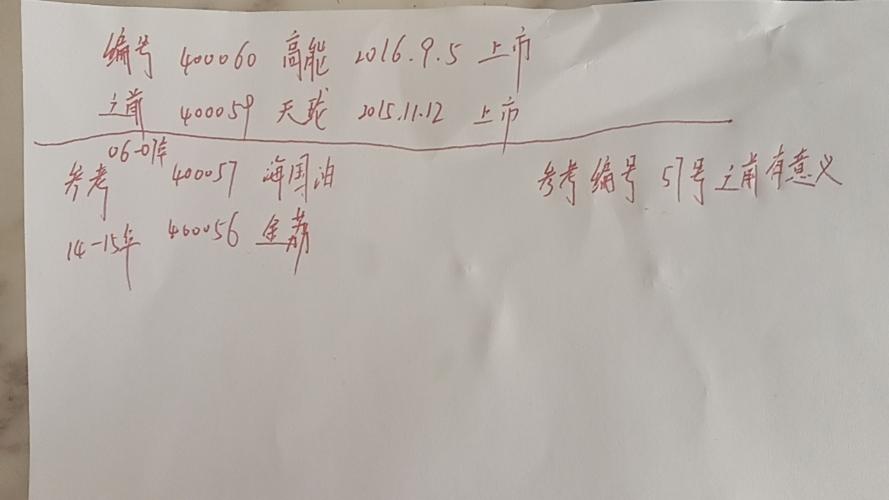 编号 400060 高能 2016.9.5 上市
之前 400059 天珑 2015.11.12 上市
06-07年
参考 400057 海国油 参考编号 57号之前有意义
14-15年 400056 金荔